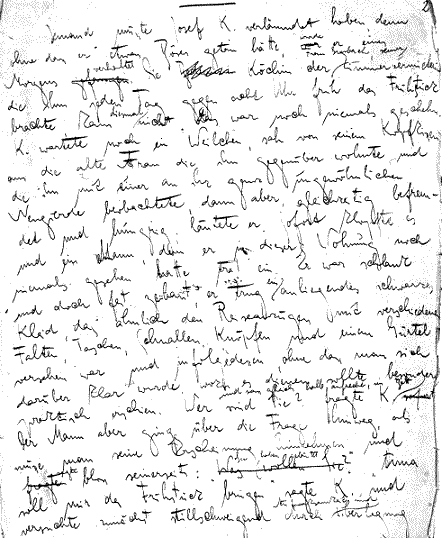 2
Jemand musste Josef K. verläumdet haben, denn
ohne dass er etwas Böses getan hätte, wurde er eines
Frau Grubach seiner
Morgens verhaftet. Die Köchin der Zimmervermieterin
die ihm jeden Tag gegen acht Uhr früh das Frühstück
brachte kam diesmal nicht. Das war noch niemals geschehn.
K. wartete noch ein Weilchen, sah von seinem Kopfkissen
aus die alte Frau die ihm gegenüber wohnte und
die ihn mit einer an ihr ganz ungewöhnlichen
Neugierde beobachtete dann aber gleichzeitig befrem-
det und hungrig läutete er. Sofort klopfte es
und ein Mann, den er in dieser Wohnung noch
niemals gesehen hatte trat ein. Er war schlank
und doch fest gebaut, er trug ein anliegendes schwarzes
Kleid, das ähnlich den Reiseanzügen mit verschiedenen
Falten, Taschen, Schnallen, Knöpfen und einem Gürtel
versehen war und infolgedessen ohne dass man sich
darüber klar wurde, wozu es dienen sollte besonders
und sass gleich halb aufrecht im Bett
praktisch erschien. Wer sind Sie? fragte K.
Der Mann aber ging über die Frage hinweg, als
müsse man seine Erscheinung hinnehmen und
Sie haben geläutet?
sagte bloss seinerseits: Was wollen Sie? "Anna
soll mir das Frühstück bringen" sagte K. und
versuchte zunächst stillschweigend durch Überlegung